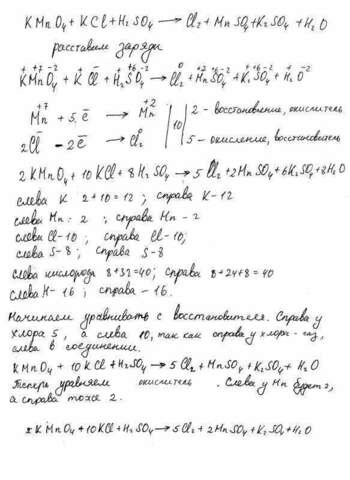 KMnO₄ + KCl + H₂SO₄ → Cl₂ + MnSO₄ + K₂SO₄ + H₂O
расставим заряды
+ +7 -2 + - + +6 -2 0 +2 +6 -2 + +6 -2 + -2
KMnO₄ + KCl + H₂SO₄ → Cl₂ + MnSO₄ + K₂SO₄ + H₂O
+7 Mn + 5ē → +2 Mn | | 2 - восстановление, окислитель
10
2Cl⁻ - 2ē → Cl₂⁰ | | 5 - окисление, восстановитель
2KMnO₄ + 10KCl + 8H₂SO₄ → 5Cl₂ + 2MnSO₄ + 6K₂SO₄ + 8H₂O
слева K 2+10=12; справа K-12
слева Mn: 2; справа Mn - 2
слева Cl-10; справа Cl-10;
слева S-8; справа S-8
слева кислорода 8+32=40; справа 8+24+8=40
слева H-16; справа - 16.
Начинаем уравнивать с восстановителя. Справа у
хлора 5, а слева 10, так как справа у хлора - газ,
слева в соединении.
KMnO₄ + 10KCl + H₂SO₄ → 5Cl₂ + MnSO₄ + K₂SO₄ + H₂O
Теперь уравняем окислитель. Слева у Mn будет 2,
а справа тоже 2.
2KMnO₄ + 10KCl + H₂SO₄ → 5Cl₂ + 2MnSO₄ + K₂SO₄ + H₂O